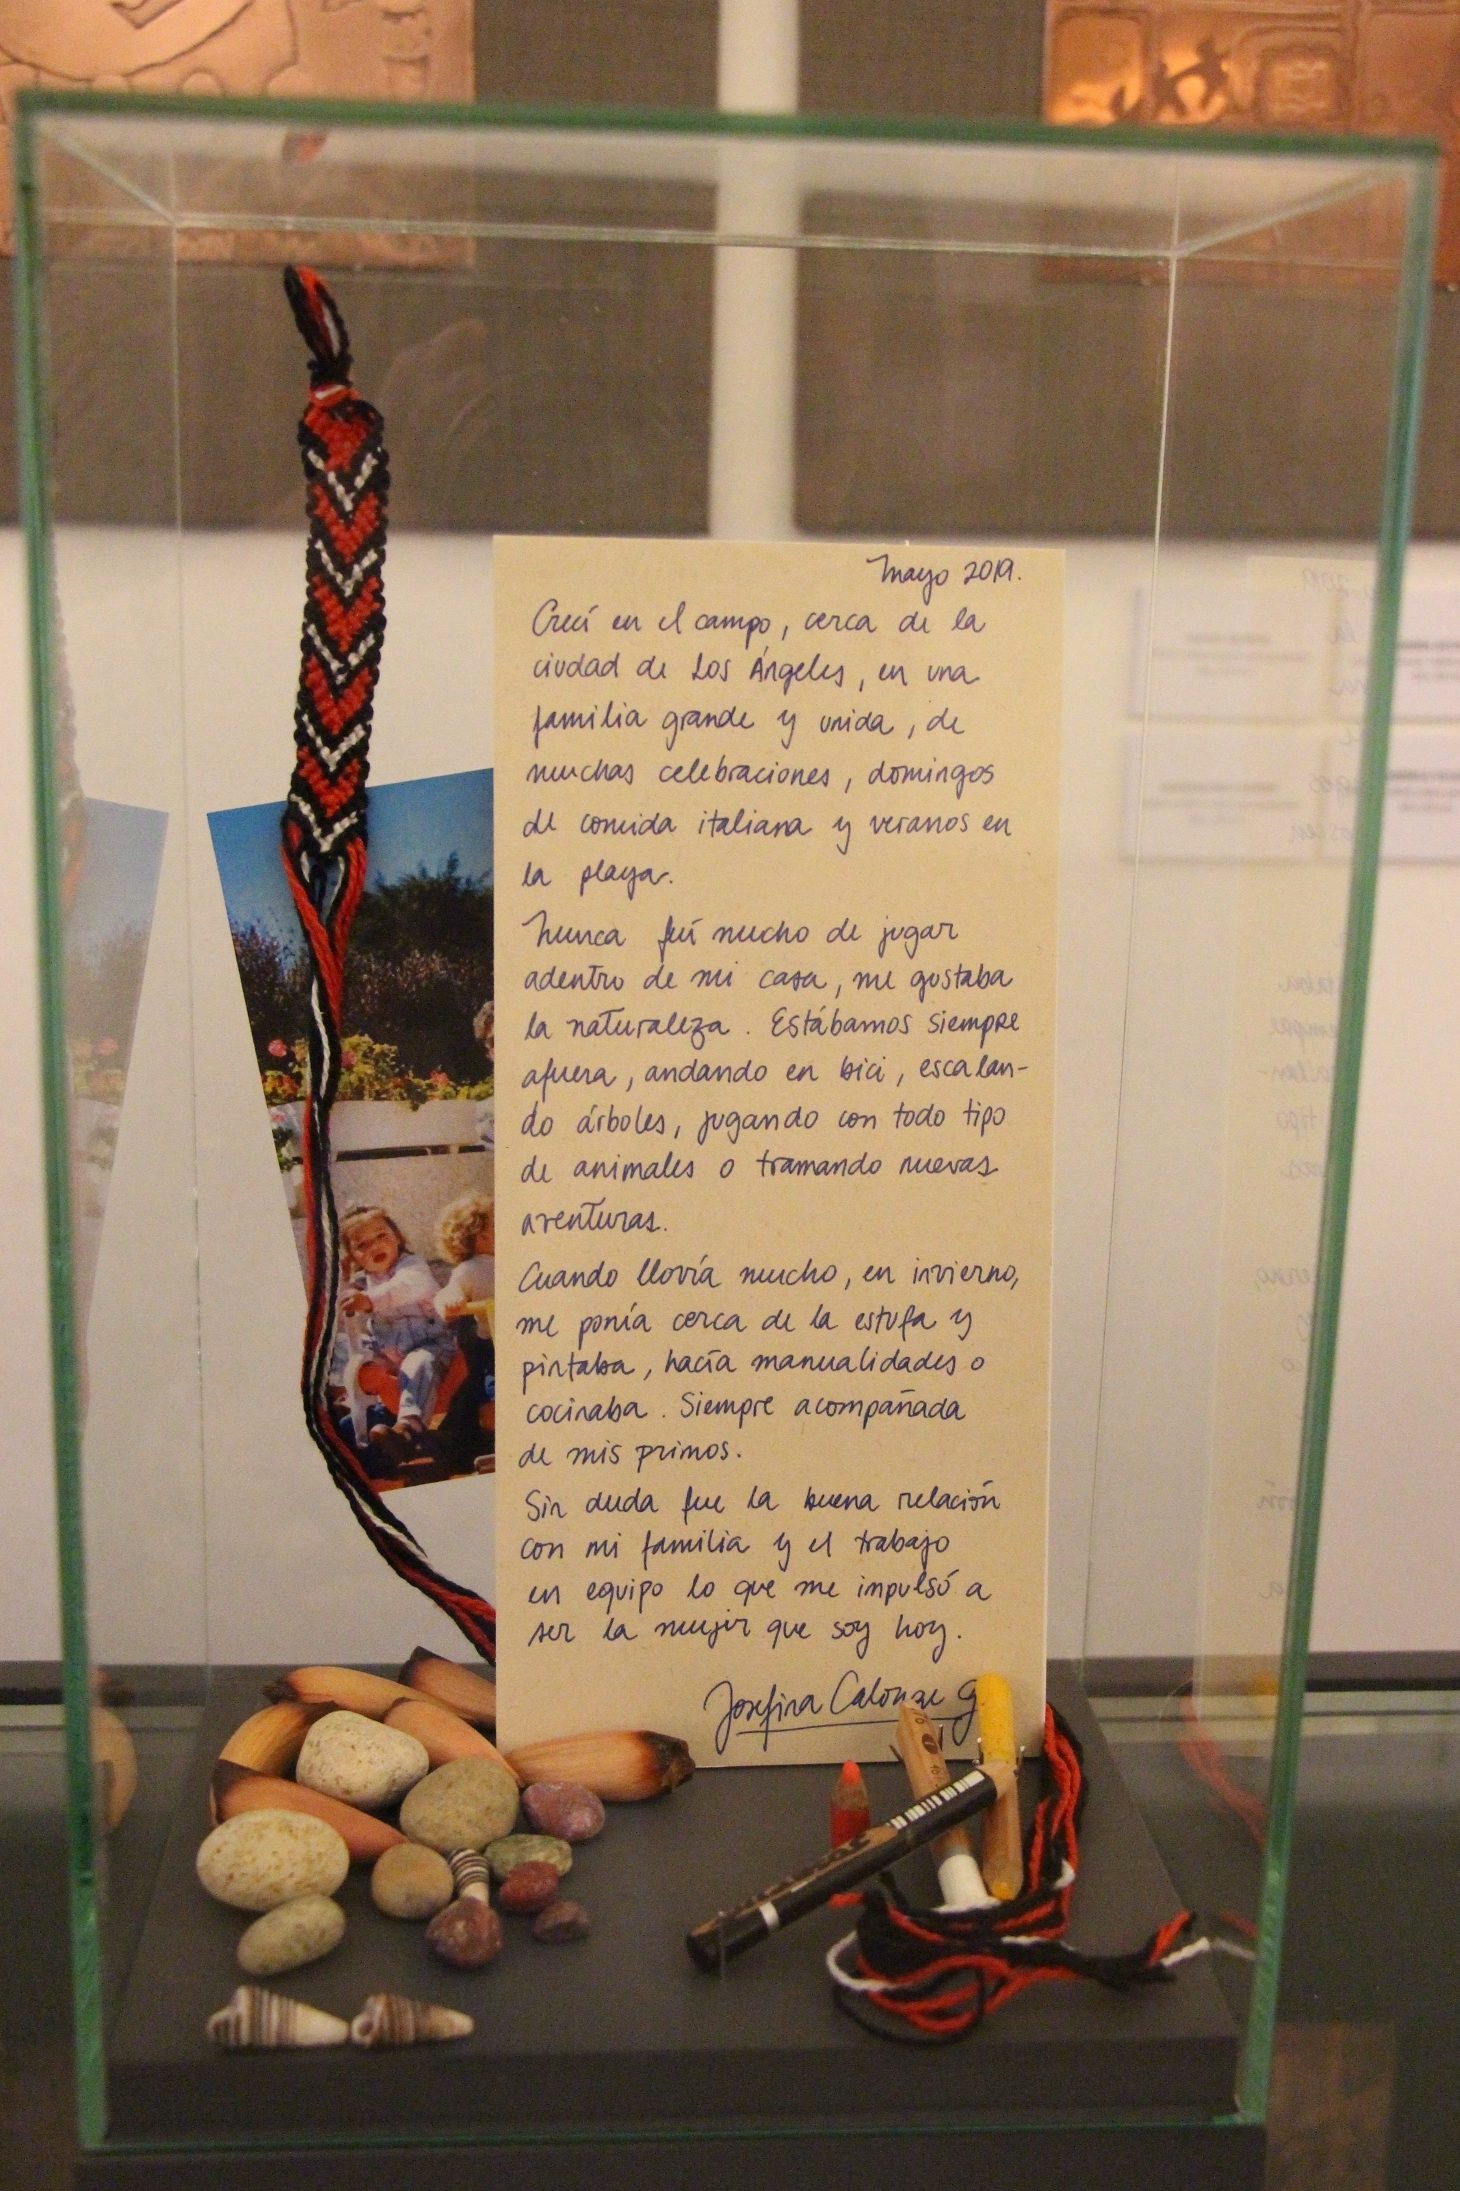 Mayo 2019.
Crecí en el campo, cerca de la
ciudad de Los Ángeles, en una
familia grande y unida, de
muchas celebraciones, domingos
de comida italiana y veranos en
la playa.
Nunca fuí mucho de jugar
adentro de mi casa, me gustaba
la naturaleza. Estábamos siempre
afuera, andando en bici, escalan-
do árboles, jugando con todo tipo
de animales o tramando nuevas
aventuras.
Cuando llovía mucho, en invierno,
me ponía cerca de la estufa y
pintaba, hacía manualidades o
cocinaba. Siempre acompañada
de mis primos.
Sin duda fue la buena relación
con mi familia y el trabajo
en equipo lo que me impulsó a
ser la mujer que soy hoy.
Josefina Calonge G